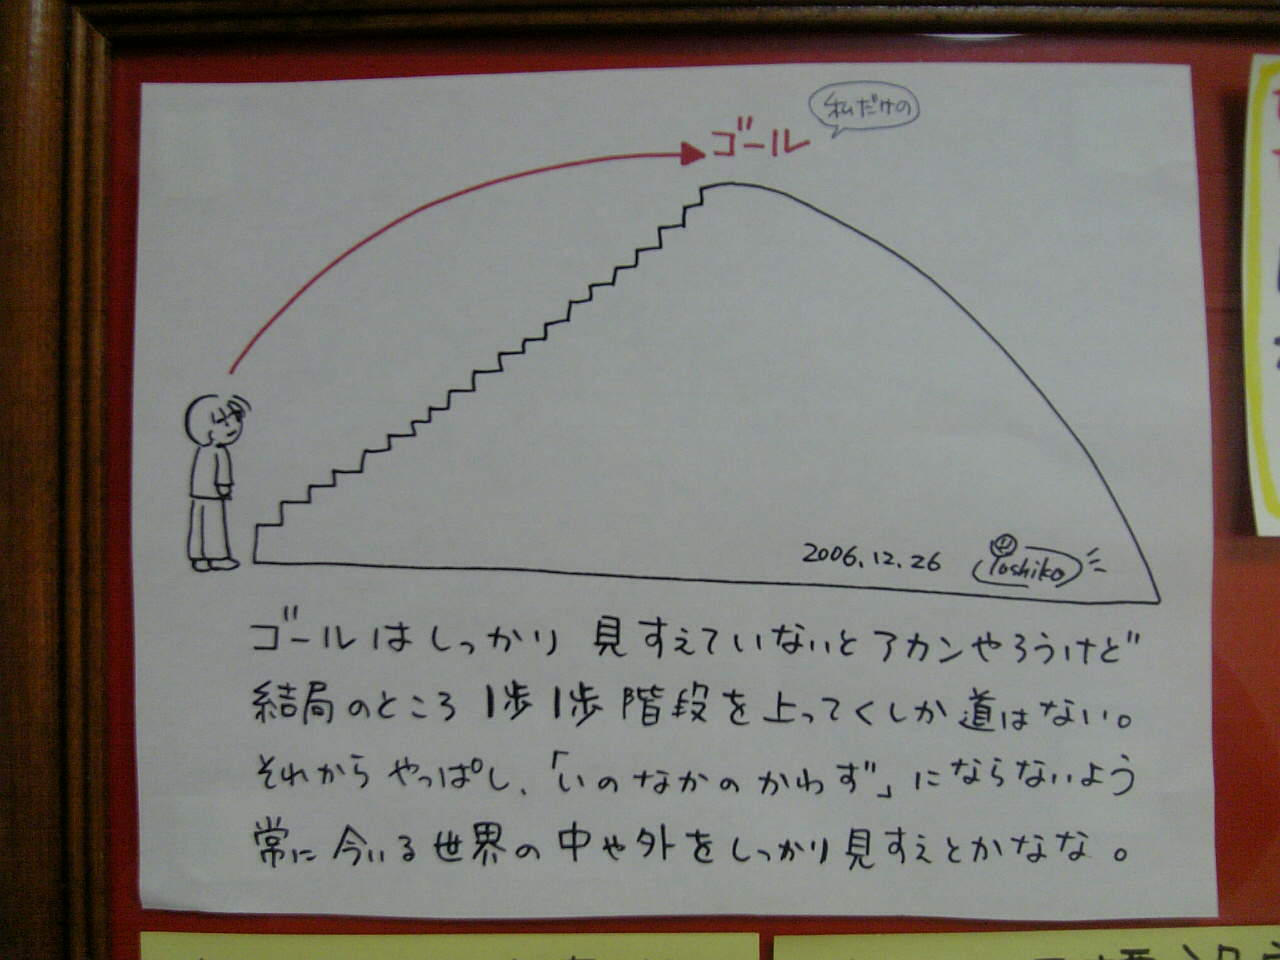 私だけの
ゴール
2006.12.26
Yoshiko
ゴールはしっかり見すえていないとアカンやろうけど
結局のところ1歩1歩階段を上ってくしか道はない。
それからやっぱし、「いのなかのかわず」にならないよう
常に今いる世界の中や外をしっかり見すえとかなな。